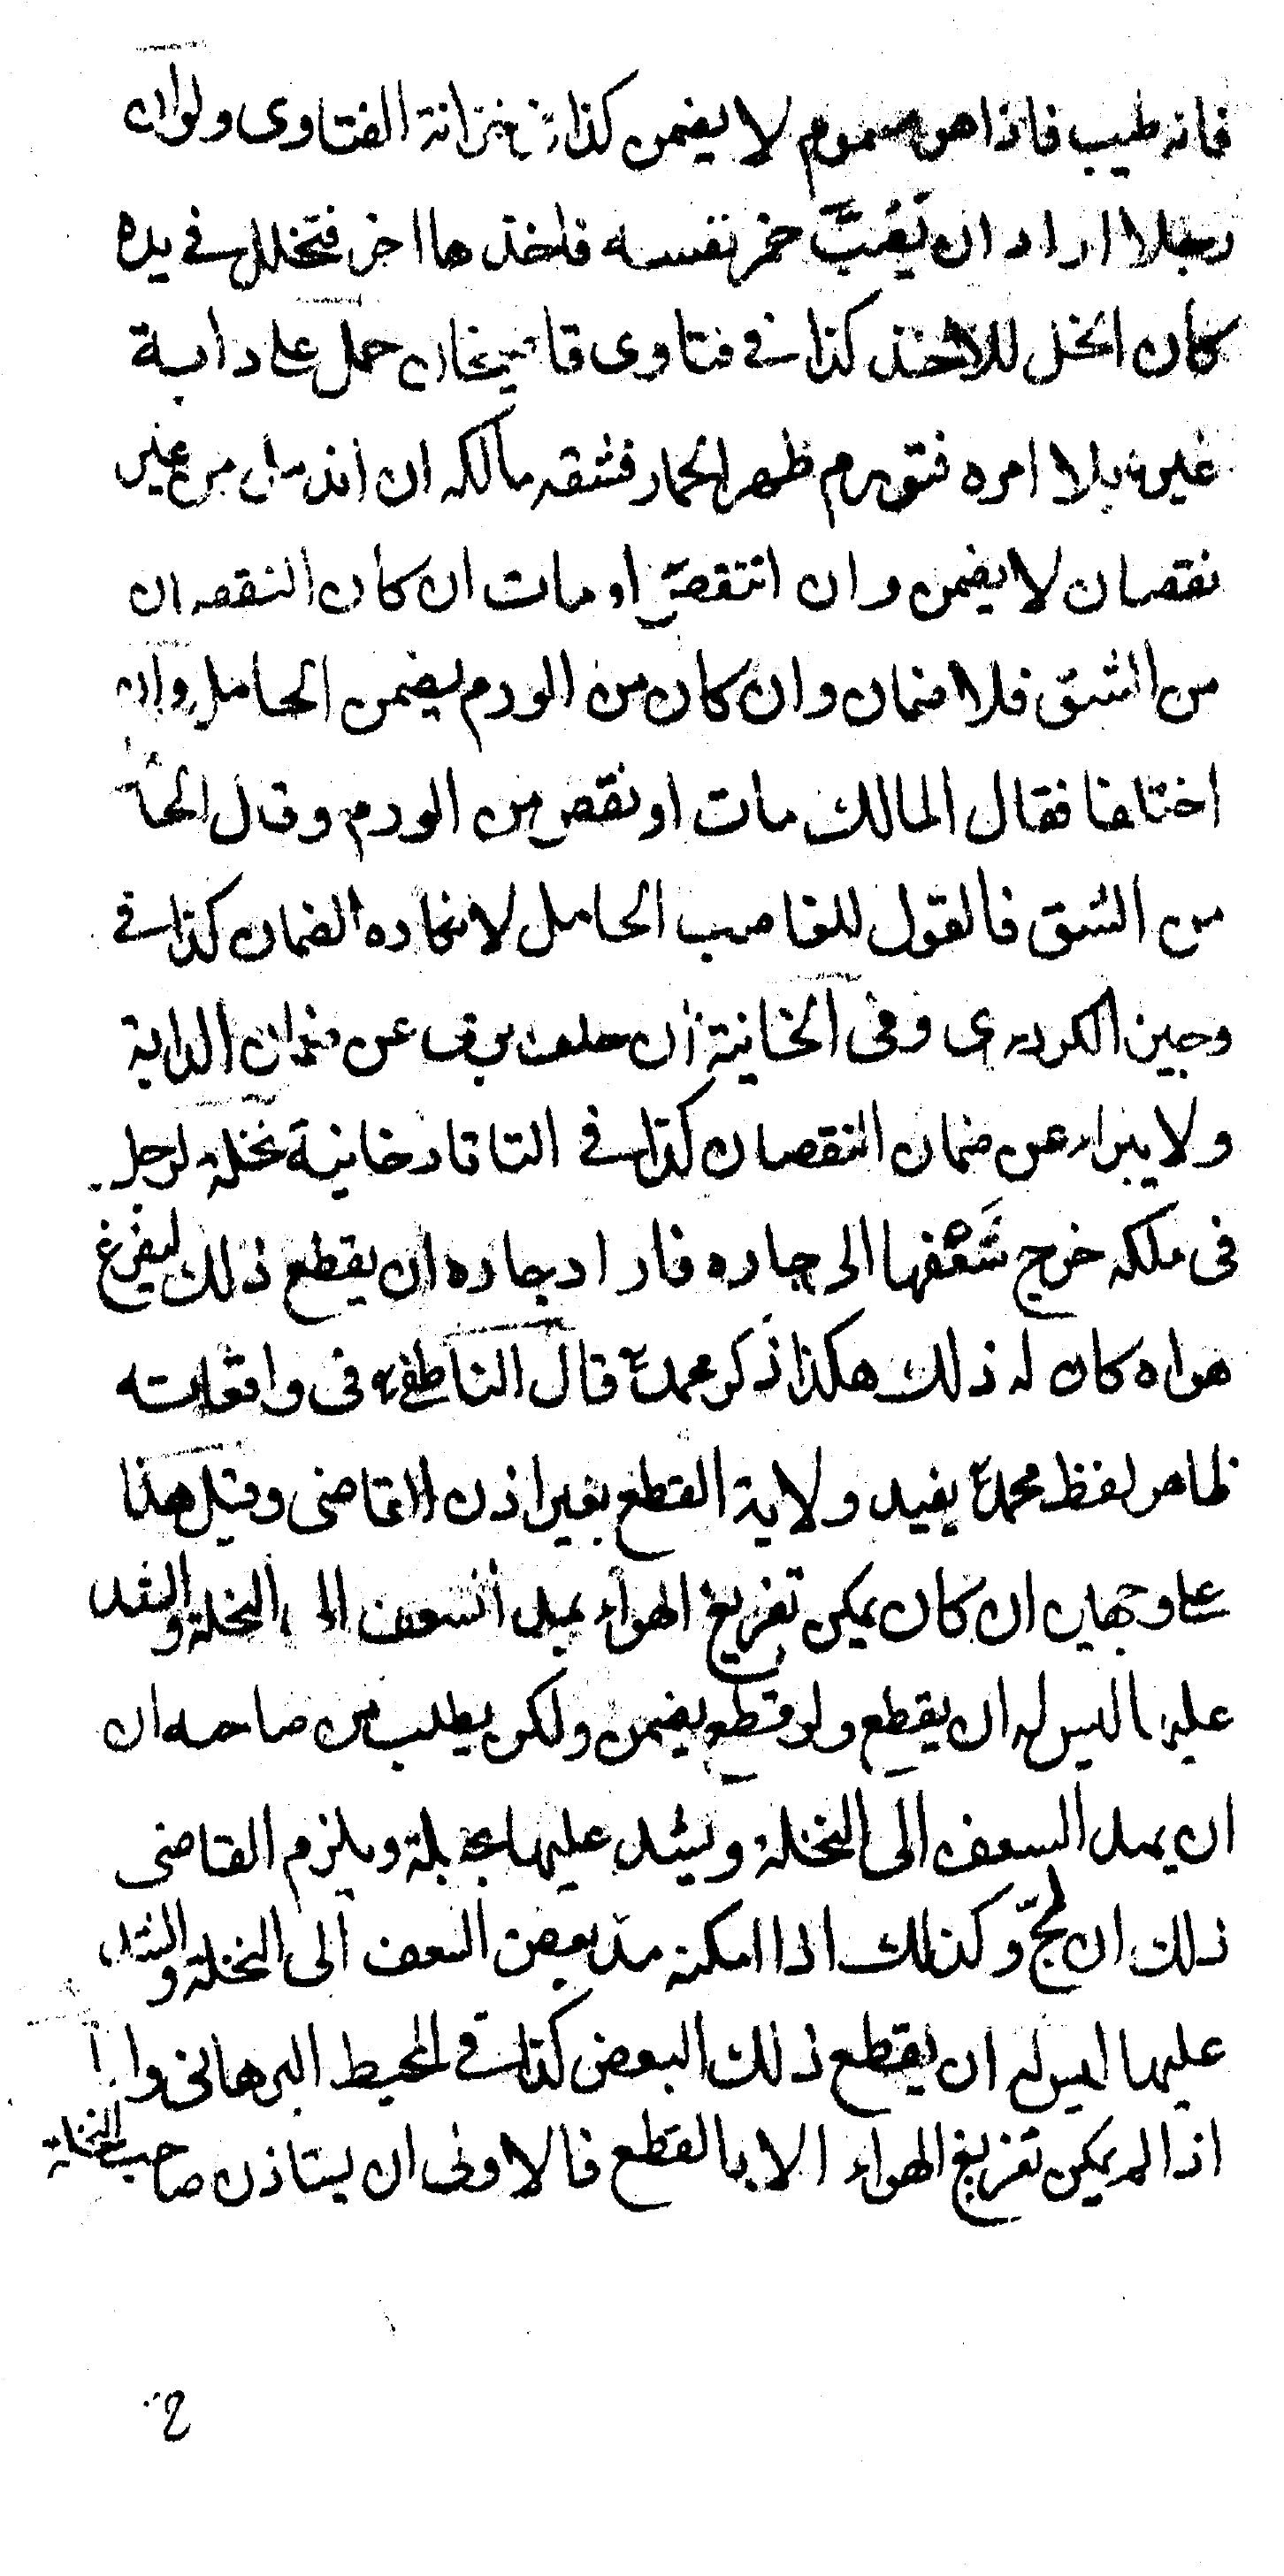 فانه طيب فاذا هو مسموم لا يضمن كذا في خزانة الفتاوى ولو ان
رجلا اراد ان يَصُبَّ خمر نفسه فاخذها اخر فتخلل في يده
كان الخل للاخذ كذا في فتاوى قاضيخان حمل على دابة
غيره بلا امره فتورم ظهر الحمار فشقه مالكه ان اندمل من غير
نقصان لا يضمن وان انتقص او مات ان كان النقصان
من الشق فلا ضمان وان كان من الورم يضمن الحامل وان
اختلفا فقال المالك مات او نقص من الورم وقال الحا
من الشق فالقول للغاصب الحامل لانكاره الضمان كذا في
وجيز الكردري وفى الخانية ان حلف برئ عن ضمان الدابة
ولا يبراء عن ضمان النقصان كذا في التاتارخانية نخلة لرجل
فى ملكه خرج سَعَفها الى جاره فاراد جاره ان يقطع ذلك ليفرغ
هواه كان له ذلك هكذا ذكر محمد قال الناطفى فى واقعاته
ظاهر لفظ محمد يفيد ولاية القطع بغير اذن القاضى وقيل هذا
على وجهين ان كان يمكن تفريغ الهواء بمد السعف الى النخلة والشد
عليها ليس له ان يقطع ولو قطع يضمن ولكن يطلب من صاحبه ان
ان يمد السعف الى النخلة ويشد عليها بحبلة ويلزم القاضى
ذلك ان لجّ وكذلك اذا امكنه مد بعض السعف الى النخلة والشد
عليها ليس له ان يقطع ذلك البعض كذا في المحيط البرهانى وا
اذا لم يمكن تفريغ الهواء الا بالقطع فالاولى ان يستاذن صاحب النخلة